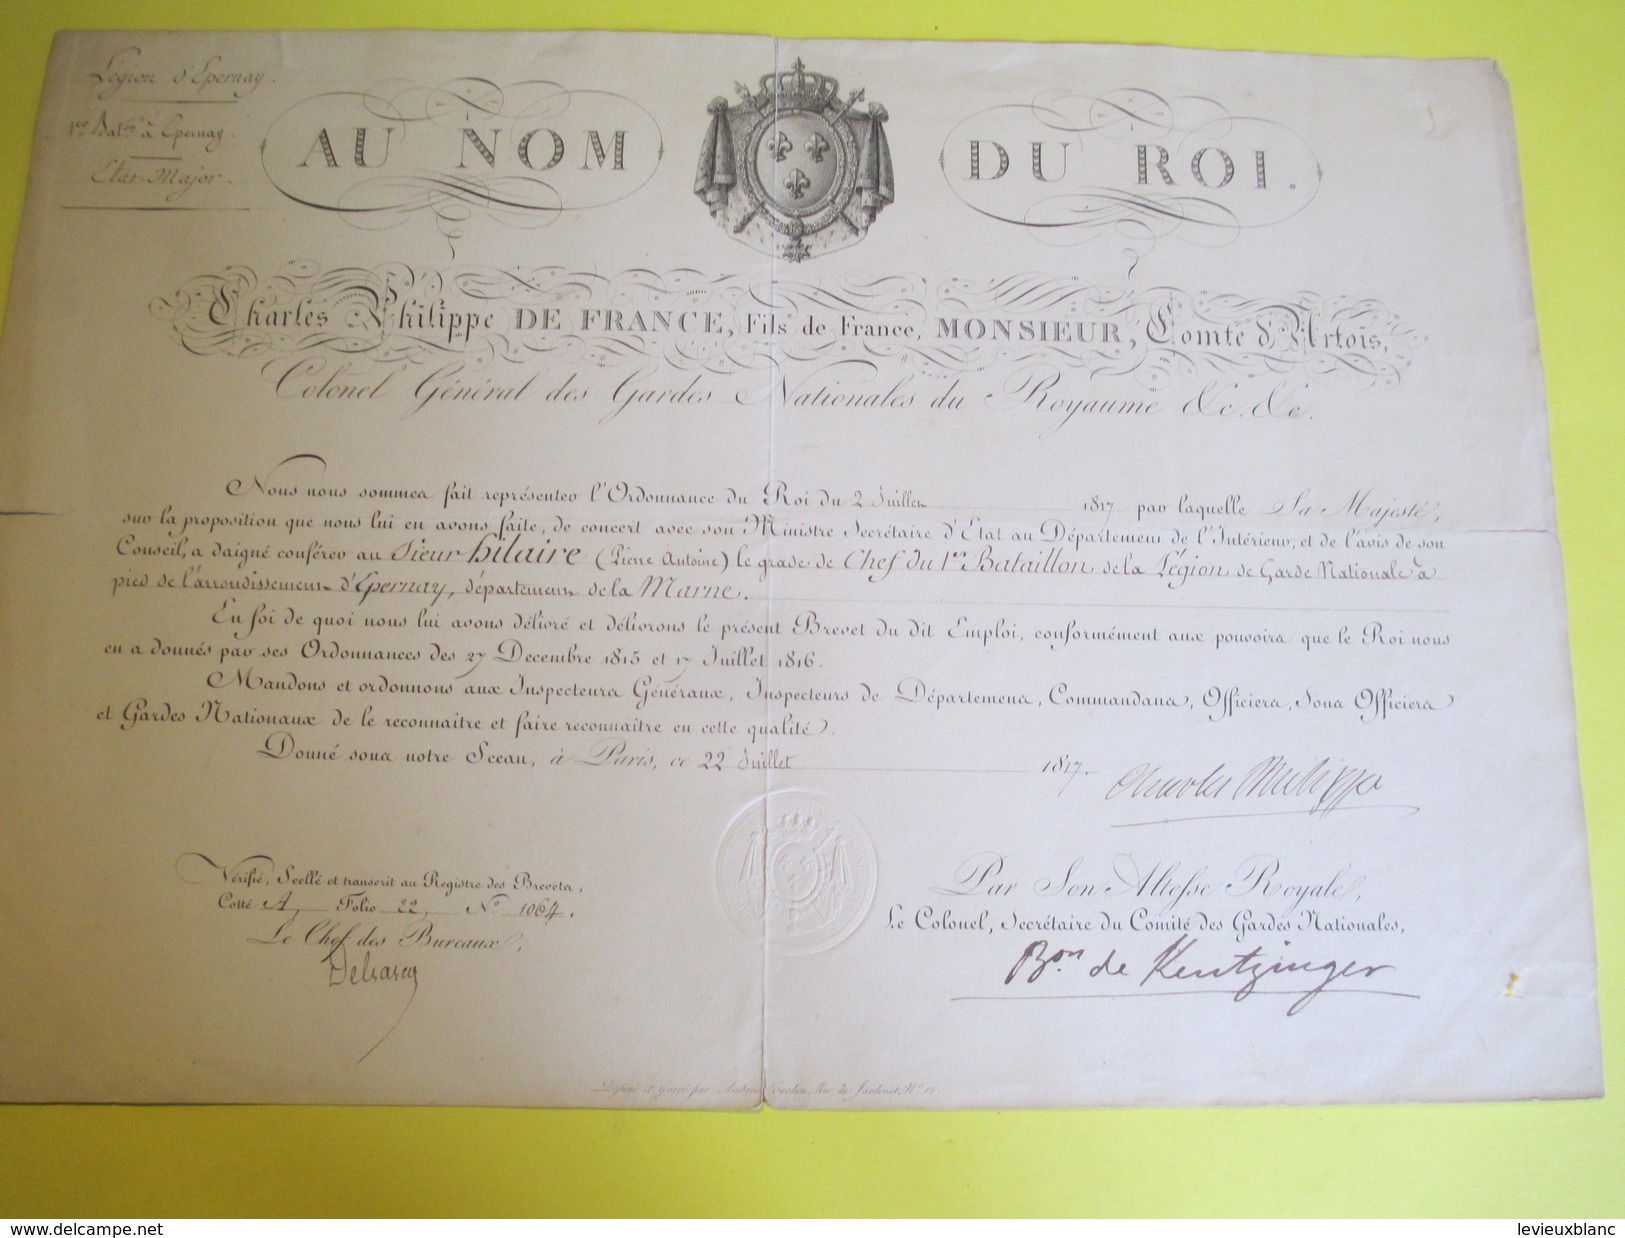 Légion d'Epernay.
1er Bat.on à Epernay.
Etat-Major.
AU NOM DU ROI.
Charles Philippe DE FRANCE, Fils de France, MONSIEUR, Comte d'Artois,
Colonel Général des Gardes Nationales du Royaume &c. &c.
Nous nous sommes fait représenter l'Ordonnance du Roi du 2 Juillet 1817 par laquelle Sa Majesté,
sur la proposition que nous lui en avons faite, de concert avec son Ministre Secrétaire d'Etat au Département de l'Intérieur, et de l'avis de son
Conseil, a daigné conférer au Sieur hilaire (Pierre Antoine) le grade de Chef du 1er Bataillon de la Légion de Garde Nationale à
pied de l'arrondissement d'Epernay, département de la Marne.
En foi de quoi nous lui avons délivré et délivrons le présent Brevet du dit Emploi, conformément aux pouvoirs que le Roi nous
en a donnés par ses Ordonnances des 27 Decembre 1815 et 17 Juillet 1816.
Mandons et ordonnons aux Inspecteurs Généraux, Inspecteurs de Départements, Commandants, Officiers, Sous Officiers
et Gardes Nationaux de le reconnaitre et faire reconnaitre en cette qualité.
Donné sous notre Sceau, à Paris, ce 22 Juillet 1817.
Charles Philippe
Vérifié, Scellé et transcrit au Registre des Brevets,
Cotté A, Folio 22, N.o 1064.
Le Chef des Bureaux,
Par Son Altesse Royale,
Le Colonel, Secrétaire du Comité des Gardes Nationales,
B.on de Kentzinger
Dessiné et gravé par Rue du Jardinet, N.o
delcampe.net
levieuxblanc